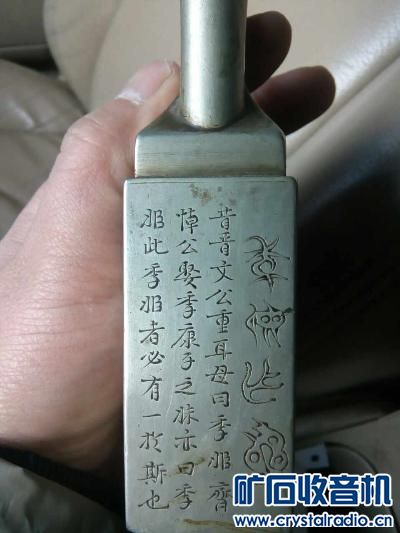 昔晉文公重耳母曰季姬齊
悼公娶季康子之妹亦曰季
姬此季姬者必有一於斯也
矿石收音机
www.crystalradio.cn